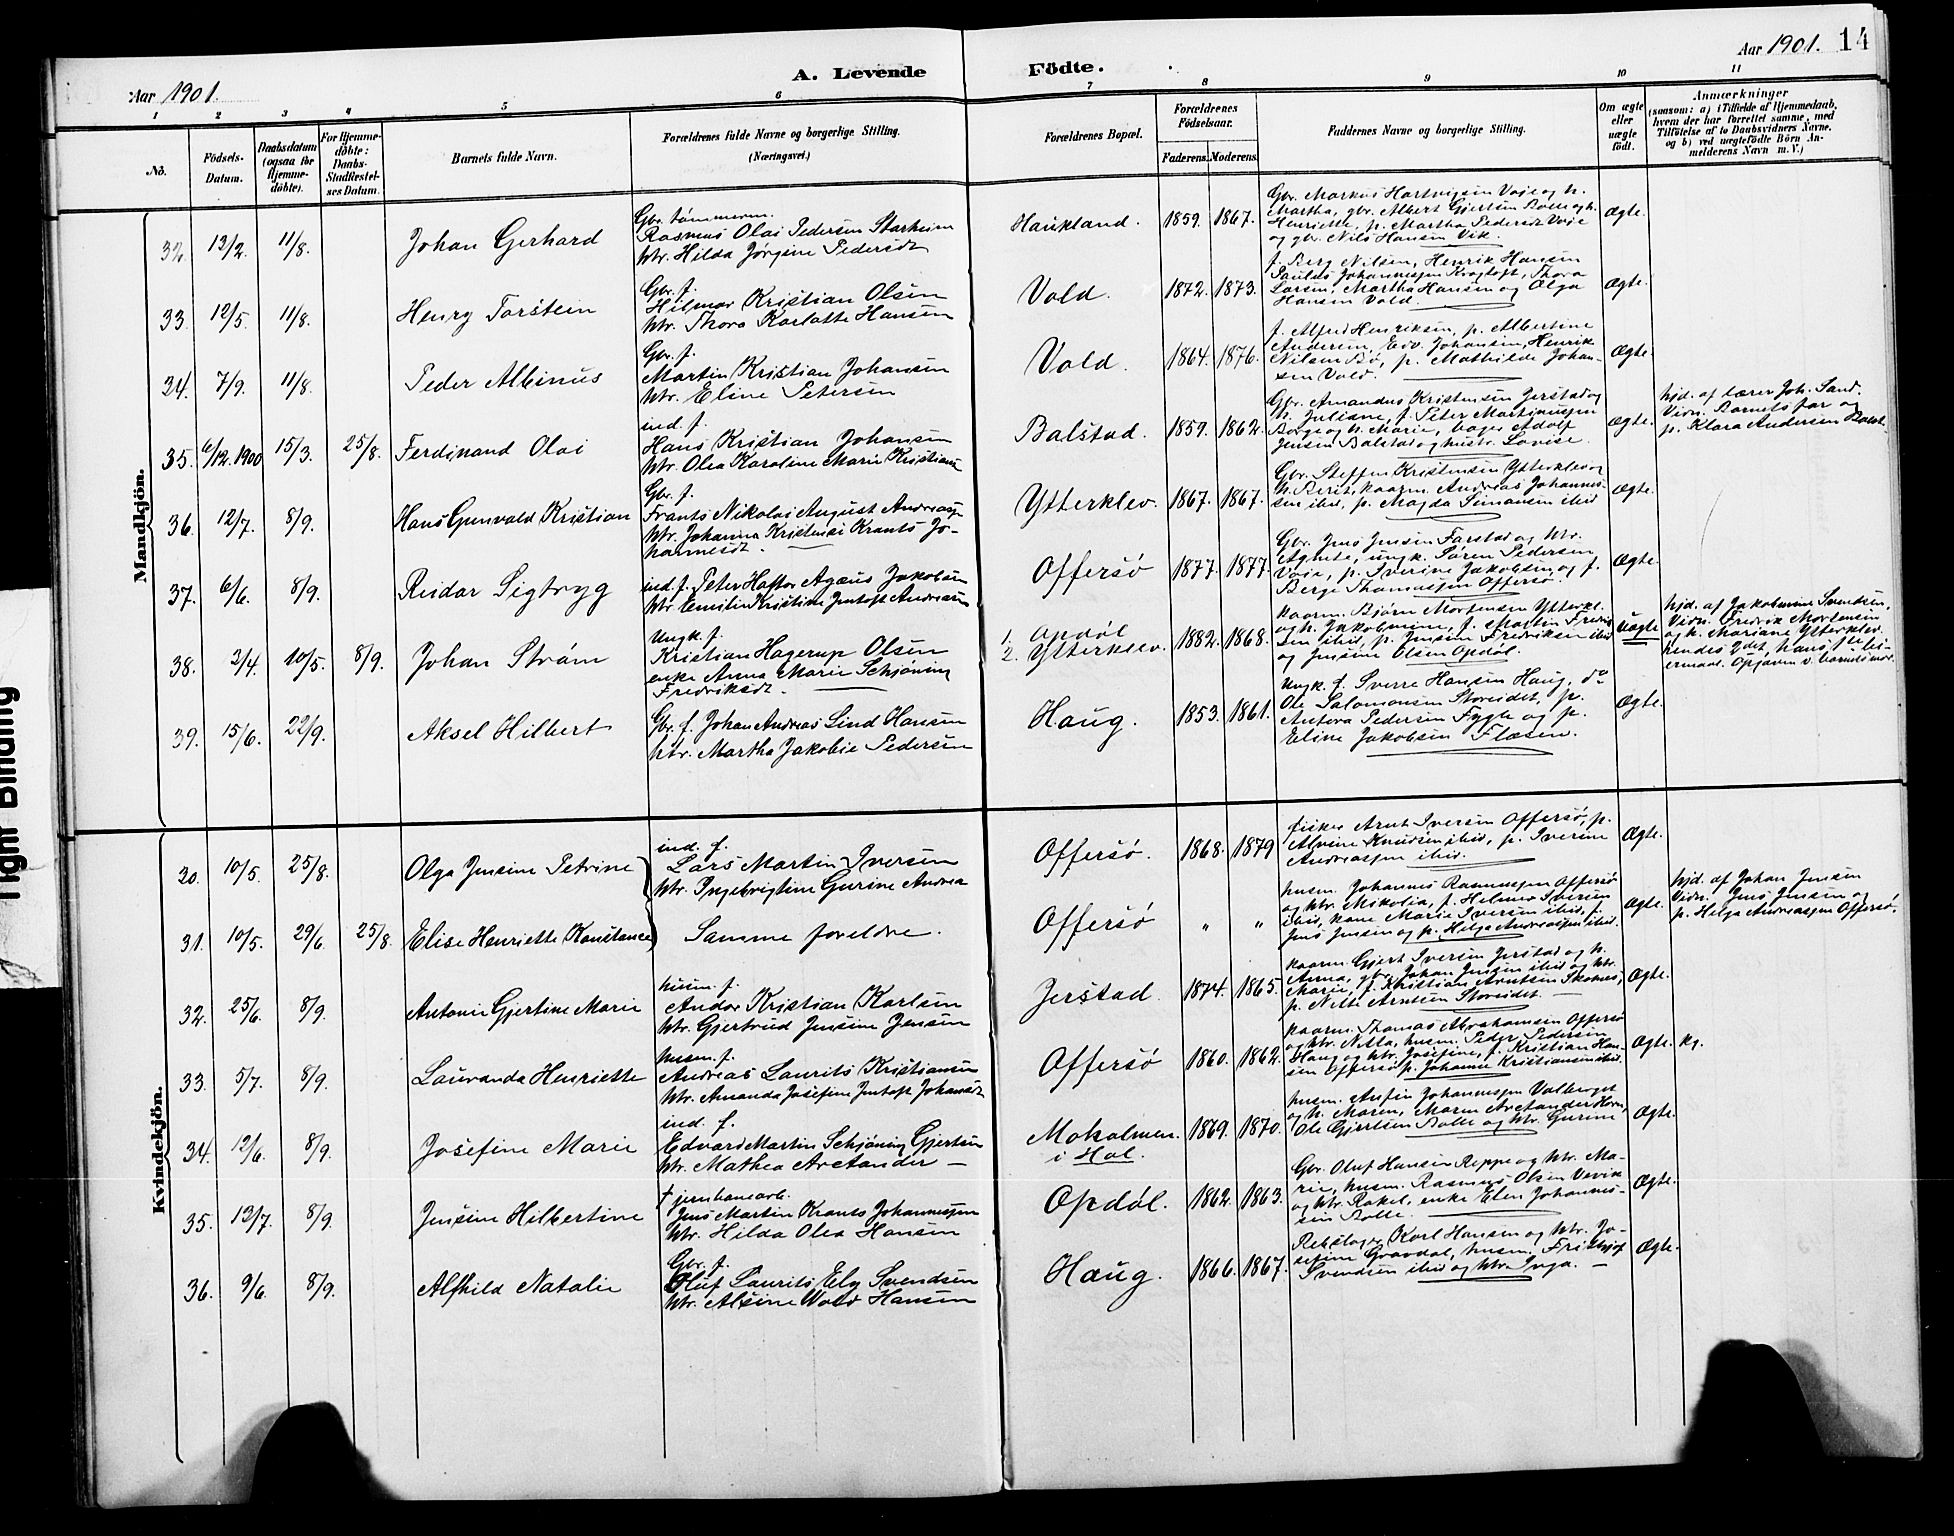 Aar 1901.
A. Levende Födte.
Aar 1901. 14
1 2 3 4 5 6 7 8 9 10 11
No.
Födsels-Datum.
Daabsdatum (ogsaa for Hjemmedöbte).
For Hjemmedöbte: Daabs-Stadfæstelses Datum.
Barnets fulde Navn.
Forældrenes fulde Navne og borgerlige Stilling. (Næringsvei.)
Forældrenes Bopæl.
Forældrenes Födselsaar.
Faderens. Moderens.
Faddernes Navne og borgerlige Stilling.
Om ægte eller uægte födt.
Anmærkninger
(saasom: a) i Tilfælde af Hjemmedaab, hvem der har forrettet samme, med Tilföielse af to Daabsvidners Navne, og b) ved uægtefödte Börn Anmelderens Navn m. V.)
Mandkjön.
32. 12/2. 11/8. Johan Gerhard
Gbr. tømmerm.
Rasmus Olai Pedersen Starheim
htr. Hilda Jørgine Pedersdt
Haukland. 1859. 1867.
Gbr. Markus Hartvigsen Voje og h.
Martha, gbr. Albert Gjertsen Bolle og h.
Henriette, p. Martha Pedersdt Voje
og gbr. Nils Hansen Vik.
Ægte.
33. 12/5. 11/8. Henry Torstein
Gbr. f.
Hilmar Kristian Olsen
htr. Thora Karlotte Hansen
Vold. 1872. 1873.
f. Berg Nilsen, Henrik Hansen
Paulus Johannessen Kragtoft, Thora
Larsen, Martha Hansen og Olga
Hansen Vold.
Ægte.
34. 7/9. 11/8. Peder Albinus
Gbr. f.
Martin Kristian Johansen
htr. Eline Petersen
Vold. 1864. 1876.
f. Alfred Henriksen, p. Albertine
Andersen, Edv. Johansen, Henrik
Nilsen Bø, p. Mathilde Johansen Vold.
Ægte.
35. 6/12. 1900 15/3. 25/8. Ferdinand Olai
ind. f.
Hans Kristian Johansen
htr. Olea Karoline Marie Kristians
Balstad. 1859. 1862.
Gbr. Amandus Kristensen Jerstad og
h. Juliane, f. Peter Martinussen
Borge og h. Marie, bager Adolf
Jensen Balstad og hustr. Lovise.
Ægte.
hjd. af lærer Joh. Sand.
Vidn. Barnets far og
p. Klara Andersen Balst.
36. 12/7. 8/9. Hans Gunvald Kristian
Gbr. f.
Frants Nikolai August Andreasen
htr. Johanna Kristense Krants Johannesdt.
Ytterklev. 1867. 1867.
Gbr. Steffen Kristensen Ytterklev og
h. Berit, kaarm. Andreas Johannessen ibid, p. Magda Simonsen ibid
Ægte.
37. 6/6. 8/9. Reidar Sigtryg
ind. f. Peter Haftor Agæus Jakobsen
htr. Emilie Kristine Jentoft Andreasen
Offersø 1877. 1877.
Gbr. Jens Jensen Farstad og htr.
Aghete, ungk. Søren Pedersen
Voje, p. Iverine Jakobsen og f.
Berge Thomassen Offersø.
Ægte.
38. 2/4. 10/5. 8/9. Johan Strøm
Ungk. f.
Kristian Hagerup Olsen
enke Anna Marie Schjøning
Fredriksdt.
1. Opdøl
2. Ytterklev. 1882. 1868.
kaarm. Bjørn Mortensen Ytterkl.
og h. Jakobmine, f. Martin Fredriksen ibid, p. Jensine Fredriksen ibid
og Jensine Olsen Opdøl.
Uægte
hjd. af Jakobmine Svendsen,
Vidn. Fredrik Mortensen
og h. Mariane Ytterklev.
39. 15/6. 22/9. Aksel Hilbert
Gbr. f. Johan Andreas Lind Hansen
htr. Martha Jakobie Pedersen
Haug. 1853. 1861.
Ungk. f. Sverre Hansen Haug, do
Ole Salomonsen Storeidet, p.
Antora Pedersen Fygle og p.
Eline Jakobsen Flæsen.
Ægte.
Kvindekjön.
30. 10/5. 25/8. Olga Jensine Petrine
ind. f.
Lars Martin Iversen
htr. Ingebrigtine Gurine Andrea
Offersø. 1868. 1879
fisker Arnt Iversen Offersø, p.
Alvine Knudsen ibid, p. Iverine
Andreassen ibid.
Ægte.
31. 10/5. 29/6. 25/8. Elise Henriette Konstance
Samme foreldre.
Offersø " "
husm. Johannes Rasmussen Offersø
og htr. Nikolia, f. Helmer Iversen
ibid, kone Marie Iversen ibid, f.
Jens Jensen og p. Helga Andreassen ibid.
Ægte.
hjd. af Johan Jensen
Vidn. Jens Jensen og
p. Helga Andreassen Offersø.
32. 25/6. 8/9. Antonie Gjertine Marie
husm. f.
Andor Kristian Karlsen
htr. Gjertrud Jensine Jensen
Jerstad 1874. 1865.
kaarm. Gjert Iversen Jerstad og h.
Anna, gbr. Johan Jensen ibid og htr.
Marie, f. Kristian Arntsen Skotnes,
p. Nette Arntsen Storeidet.
Ægte.
33. 5/7. 8/9. Lauranda Henriette
husm. f.
Andreas Laurits Kristiansen
htr. Amanda Josefine Jentoft Johansdt
Offersø 1860. 1862.
kaarm. Thomas Abrahamsen Offersø
og htr. Nitta, husm. Peder Pedersen
Haug og htr. Josefine, f. Kristian Hansen Offersø p. Johanne Kristiansen ibid.
Ægte. kg.
34. 12/6. 8/9. Josefine Marie
ind. f.
Edvard Martin Schjøning Gjertsen
htr. Mathea Arctander
Moholmen i Hol. 1869. 1870.
husm. Anfin Johannessen Valberget
og h. Maren, Maren Arctander Horn,
Ole Gjertsen Bolle og htr. Gurine
Ægte.
35. 13/7. 8/9. Jensine Hilbertine
† jernbanearb.
Jens Martin Krants Johannessen
htr. Hilda Olea Hansen
Opdøl. 1862. 1863.
Gbr. Oluf Hansen Reppe og htr. Marie, husm. Rasmus Olsen Urvik
og htr. Rakel, enke Elen Johannessen Bolle.
Ægte.
36. 9/6. 8/9. Alfhild Natalie
Gbr. f.
Oluf Laurits Ely Svendsen
htr. Alsine Wold Hansen
Haug. 1866. 1867.
Rebslager Karl Hansen og htr. Josefine Gravdal, husm. Fridtjof
Svendsen ibid og htr. Inga.
Ægte.
Tight Binding